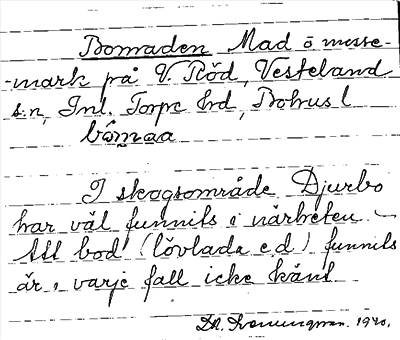 Bomaden Mad o mosse-
-mark på V. Röd, Vesteland
s:n, Inl. Torpe hd, Bohus l
bômaa
I skogsområde Djurbo
har väl funnits i närheten –
Att bod (lövlada e.d.) funnits
är i varje fall icke känt
1940.